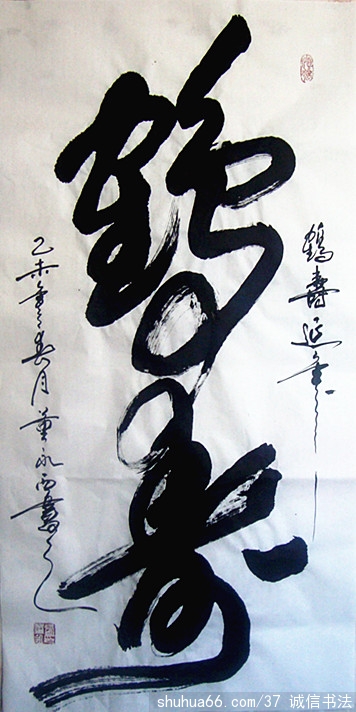 鹤寿延年
鹤寿
乙未年春月董永西书
shuhua66.com/37 诚信书法